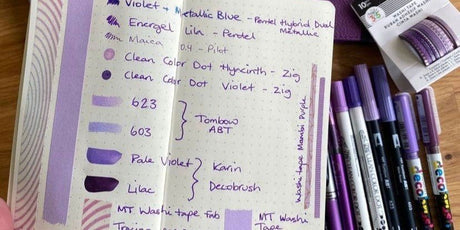 Violet + Metallic Blue - Pentel Hybrid Dual
Metallic
Energel Lila - Pentel
Maica 0.4 - Pilot
Clean Color Dot Hyacinth - Zig
Clean Color Dot Violet - Zig
623
603
Tombow
ABT
Pale Violet
Lilac
Karin
Decobrush
MT Washi tape Fab
MT Washi
Tape
Washi tape Mambi Purple
10